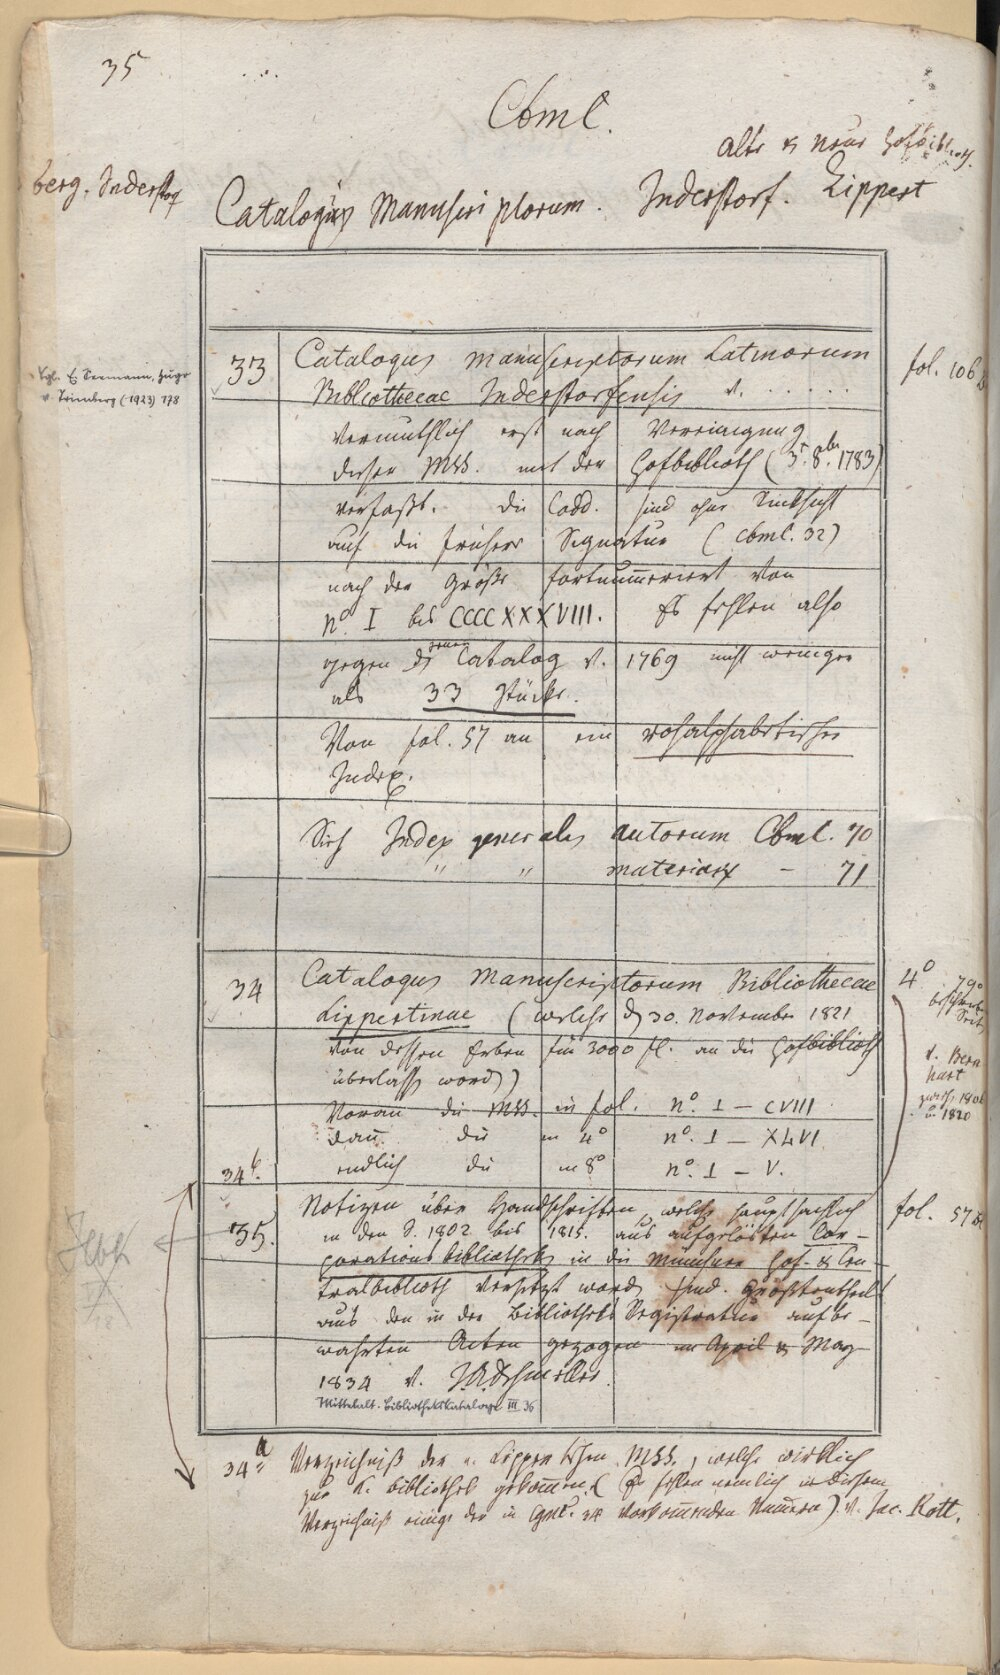 35
CbmC.
Alte & neue Hofbiblioth.
berg. Inderstorf
Catalogus Manuscriptorum. Inderstorf. Lippert
33 Catalogus Manuscriptorum Latinorum fol. 106
Vgl. E. Seemann, Hugo
v. Trimberg (1923) 178
Bibliothecae Inderstorfensis v. . . . . .
vermuthlich erst nach Vereinigung
dieser MSS. mit der Hofbiblioth (3t. 8br. 1783)
verfaßt. Die Codd. sind ohne Rücksicht
auf die frühere Signatur (CbmC. 32)
nach der Größe fortnumeriert von
no. I bis CCCCXXXVIII. Es fehlen also
gegen jenen Catalog v. 1769 nicht weniger
als 33 Stücke.
Von fol. 57 an ein rohalphabetischer
Index.
Sieh Index generalis autorum CbmC. 70
" " materiar. - 71
34 Catalogus Manuscriptorum Bibliothecae 4o
Lippertinae (welche d. 30. November 1821
von dessen Erben für 3000 fl. an die Hofbiblioth
überlassen worden)
v. Bern
hart
zwisch. 1806
u. 1820
Voran die MSS. in fol. no. I - CVIII
dann die in 4o no. I - XLVI
endlich die in 8o no. I - V.
34b.
35. Notizen über Handschriften, welche hauptsächlich fol. 57
in den J. 1802 bis 1815. aus aufgelösten Cor-
porationsbibliotheken in die Münchner Hof- & Cen-
tralbiblioth versetzt worden sind. Größtentheils
aus den in der Bibliotheks Registratur aufbe-
wahrten Acten gezogen im April & May
1834 v. J.A.Schmeller.
Mittelalt. Bibliothekskataloge III 36
34a Verzeichniß der v. Lippertschen MSS., welche wirklich
zur k. Bibliothek gekommen. (Es fehlen nemlich in diesem
Verzeichniß einige der in 34 vorkommenden Numern). v. Jac. Rott.